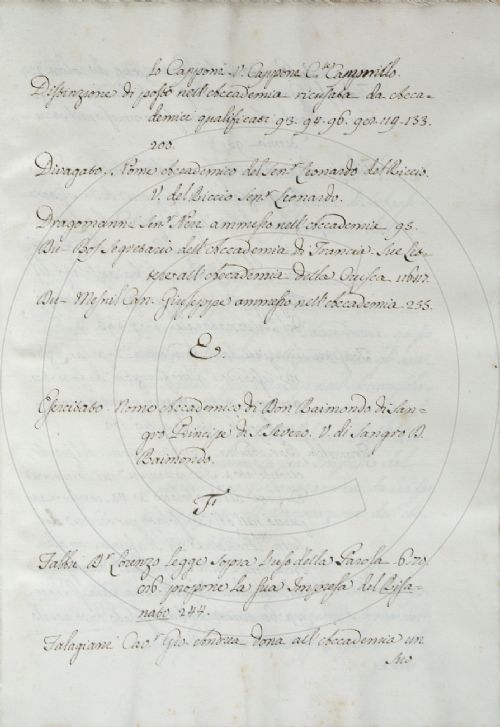 lo Capponi. V. Capponi C.te Cammillo.
Distinzione di posto nell'Accademia ricusata da Acca-
demici qualificati 93. 94. 96. 119. 133.
200.
Divagato. Nome Accademico del Sen.r Leonardo del Riccio.
V. del Riccio Sen.r Leonardo.
Dragomanni Sen.r Neri ammesso nell'Accademia 95.
Du-Bos Segretario dell'Accademia di Francia. Sue let-
tere all'Accademia della Crusca.
Du-Mesnil Can. Giuseppe ammesso nell'Accademia 255.
E
Esercitato. Nome Accademico di Don Raimondo di San-
gro Principe di S. Severo. V. di Sangro D.
Raimondo.
F.
Fabbri D.r Lorenzo legge sopra l'uso della Parola
propone la sua Impresa del Risa-
nato 244.
Falagiani Cav.r Gio. Andrea dona all'Accademia un
suo